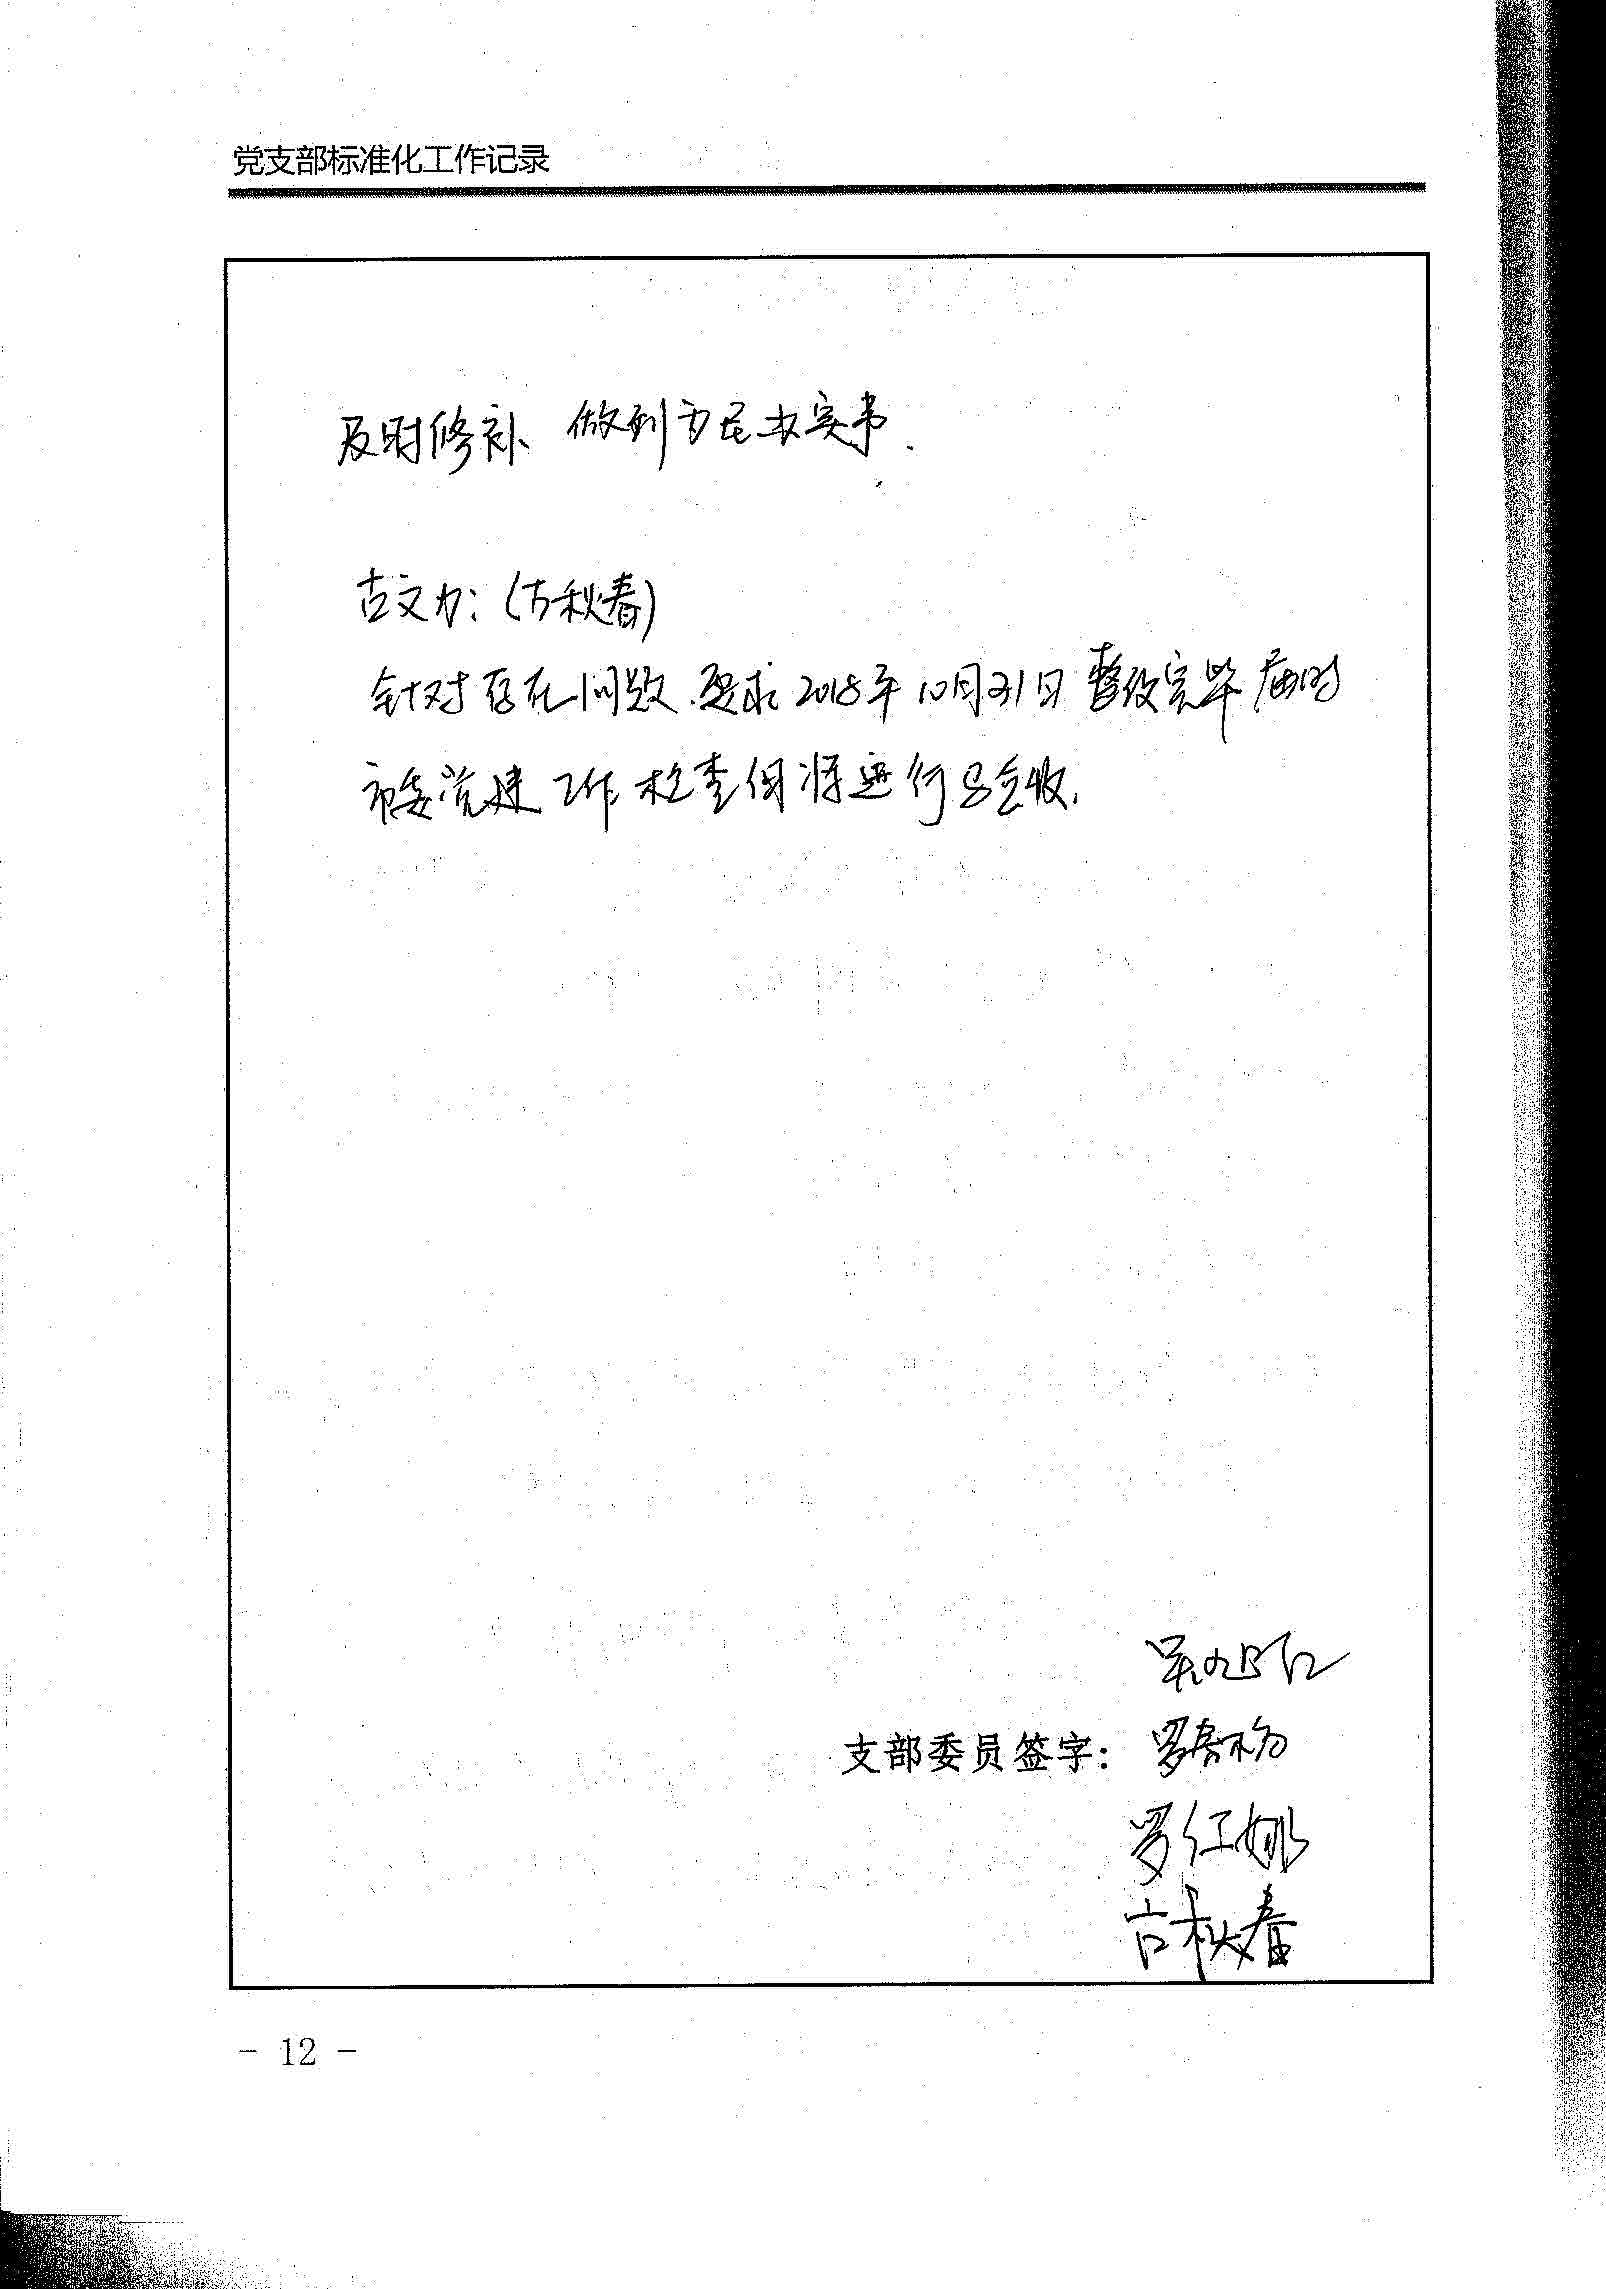 党支部标准化工作记录
及时修补、做到为民办实事.
古文力:(古秋春)
针对存在问题.要求2018年10月31日整改完毕届时
市委党建工作检查组将进行验收.
支部委员签字:
罗红娥
古秋春
- 12 -